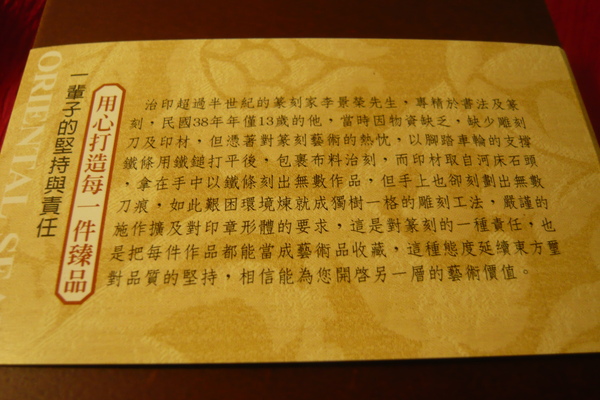 ORIENTAL SE
一輩子的堅持與責任
用心打造每一件臻品
治印超過半世紀的篆刻家李景榮先生，專精於書法及篆
刻，民國38年年僅13歲的他，當時因物資缺乏，缺少雕刻
刀及印材，但憑著對篆刻藝術的熱忱，以腳踏車輪的支撐
鐵條用鐵鎚打平後，包裹布料治刻，而印材取自河床石頭
，拿在手中以鐵條刻出無數作品，但手上也卻刻劃出無數
刀痕，如此艱困環境煉就成獨樹一格的雕刻工法，嚴謹的
施作擴及對印章形體的要求，這是對篆刻的一種責任，也
是把每件作品都能當成藝術品收藏，這種態度延續東方璽
對品質的堅持，相信能為您開啓另一層的藝術價值。